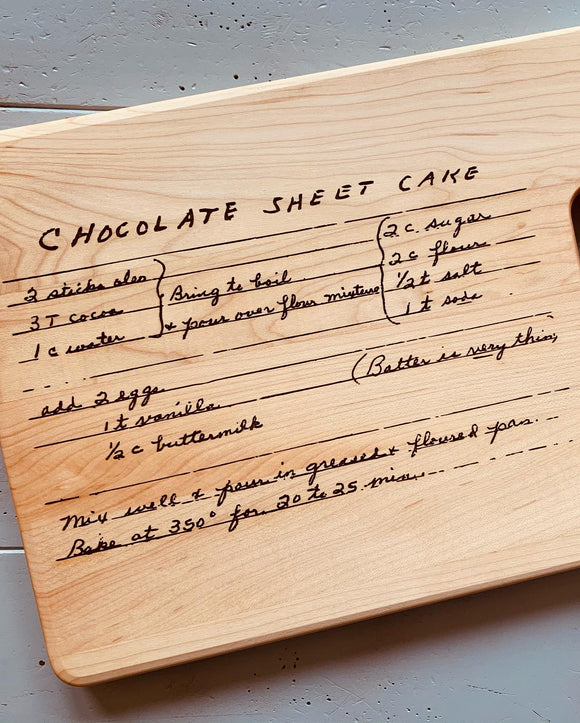 CHOCOLATE SHEET CAKE
2 sticks oleo
3 T cocoa
1 c water
Bring to boil
& pour over flour mixture
2 c. sugar
2 c flour
1/2 t salt
1 t soda
add 2 eggs
1 t vanilla
1/2 c buttermilk
(Batter is very thin)
Mix well & pour in greased & floured pan.
Bake at 350° for 20 to 25 min.